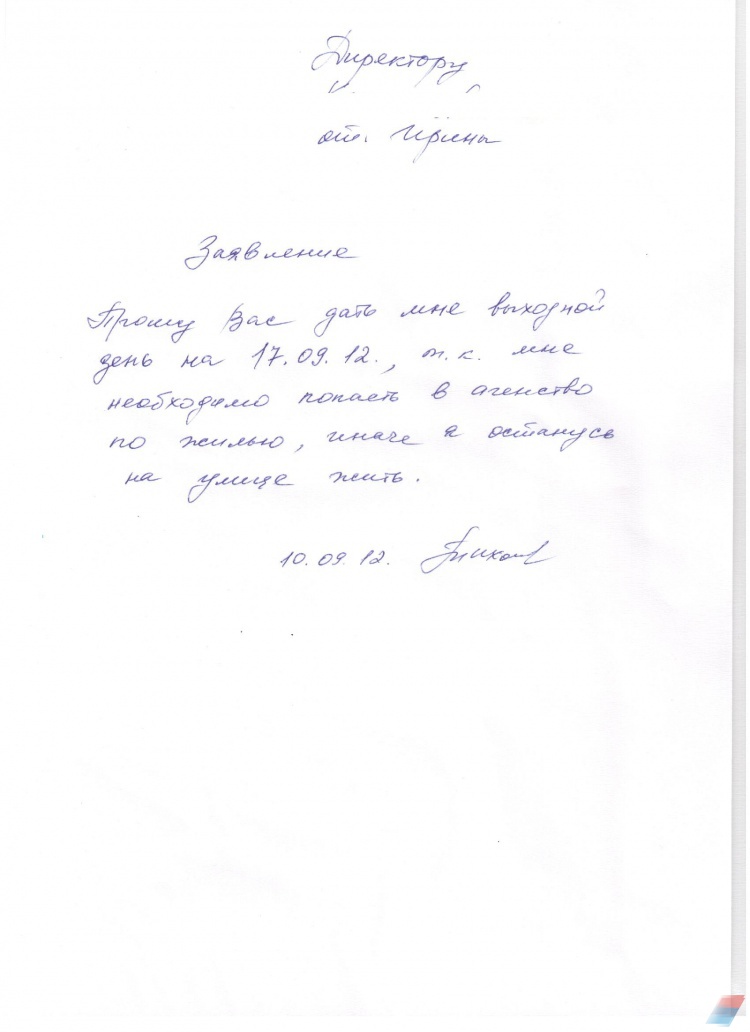 Директору
от. Ирины
Заявление
Прошу Вас дать мне выходной
день на 17.09.12., т.к. мне
необходимо попасть в агенство
по жилью, иначе я останусь
на улице жить.
10.09.12.